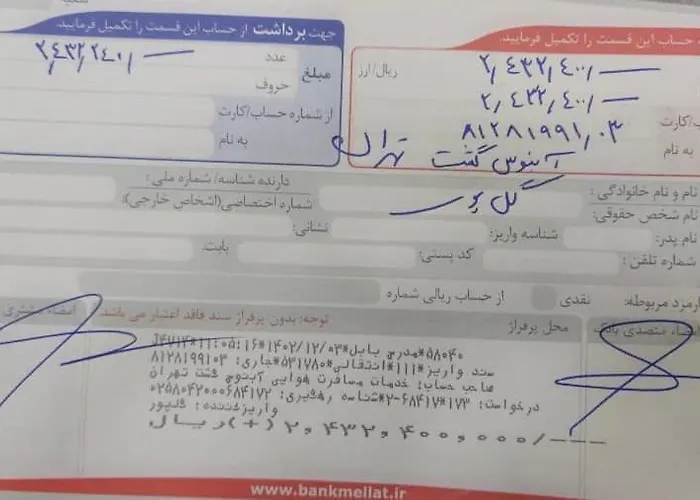 جهت برداشت از حساب این قسمت را تکمیل فرمایید.
حساب این قسمت را تکمیل فرمایید.
مبلغ
عدد
حروف
از شماره حساب/کارت
به نام
ریال/ارز
۲,۴۳۲,۴۰۰/
۲,۴۳۲,۴۰۰/
ب/کارت
۸۱۲۸۱۹۹۱,۰۳
به نام
آبنوس گشت تهران
نام و نام خانوادگی:
گل پور
دارنده شناسه/ شماره ملی:
نام شخص حقوقی:
شماره اختصاصی(اشخاص خارجی):
نام پدر:
شناسه واریز:
نشانی:
شماره تلفن:
کد پستی:
بابت.
ارمزد مربوطه:
نقدی
از حساب ریالی شماره
توجه: بدون پرفراژ سند فاقد اعتبار می باشد.
امضاء متصدی بانک
محل پرفراژ
امضاء مشتری
۵۸۰۴۰*مدرس بابل*۱۴۰۲/۱۲/۰۳*۱۱:۰۵:۱۶*J۴۷۱۴
سند واریز*۱۱۱*انتقالی*۵۳۱۷۸۰*جاری: ۸۱۲۸۱۹۹۱۰۳
صاحب حساب: خدمات مسافرت هوایی آبنوس گشت تهران
درخواست: ۱۷۳*۲-۶۸۴۱۷*شناسه رهگیری: ۰۲۵۸۰۴۲۰۰۰۶۸۴۱۷۲
واریزکننده: گلپور
۲,۴۳۲,۴۰۰,۰۰۰/---(+) ریال
www.bankmellat.ir